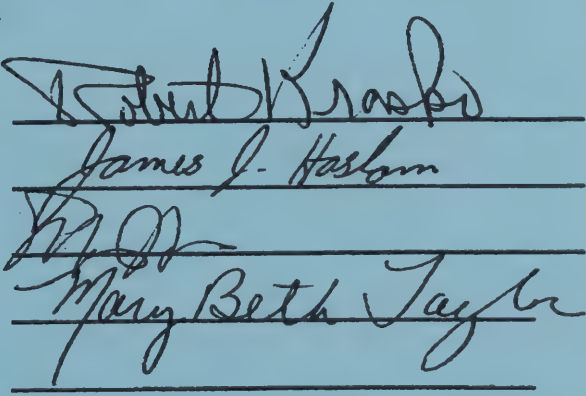 Robert Krasko
James J. Haslam
Mary Beth Taylor